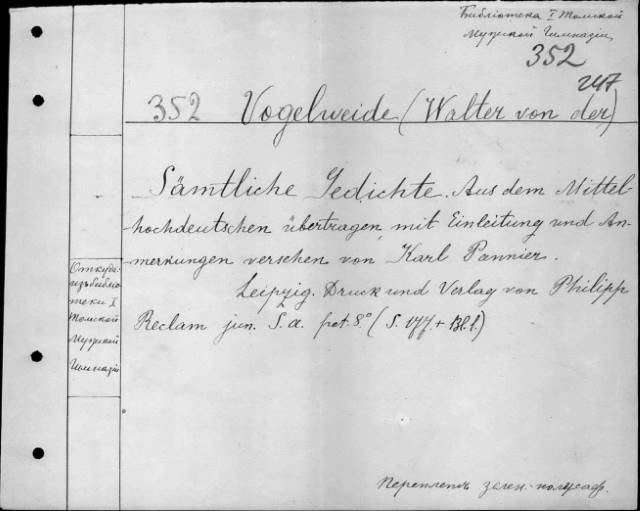 Библіотека I Томской
Мужской Гимназіи
352
247
352 Vogelweide (Walter von der)
Sämtliche Gedichte. Aus dem Mittel-
hochdeutschen übertragen, mit Einleitung und An-
merkungen versehen von Karl Pannier.
Leipzig. Druck und Verlag von Philipp
Reclam jun. S. a. pet. 8° (S. 177 + Bl. 1.)
Откуда:
изъ библіо-
теки I
Томской
Мужской
Гимназіи
Переплетъ зелен.